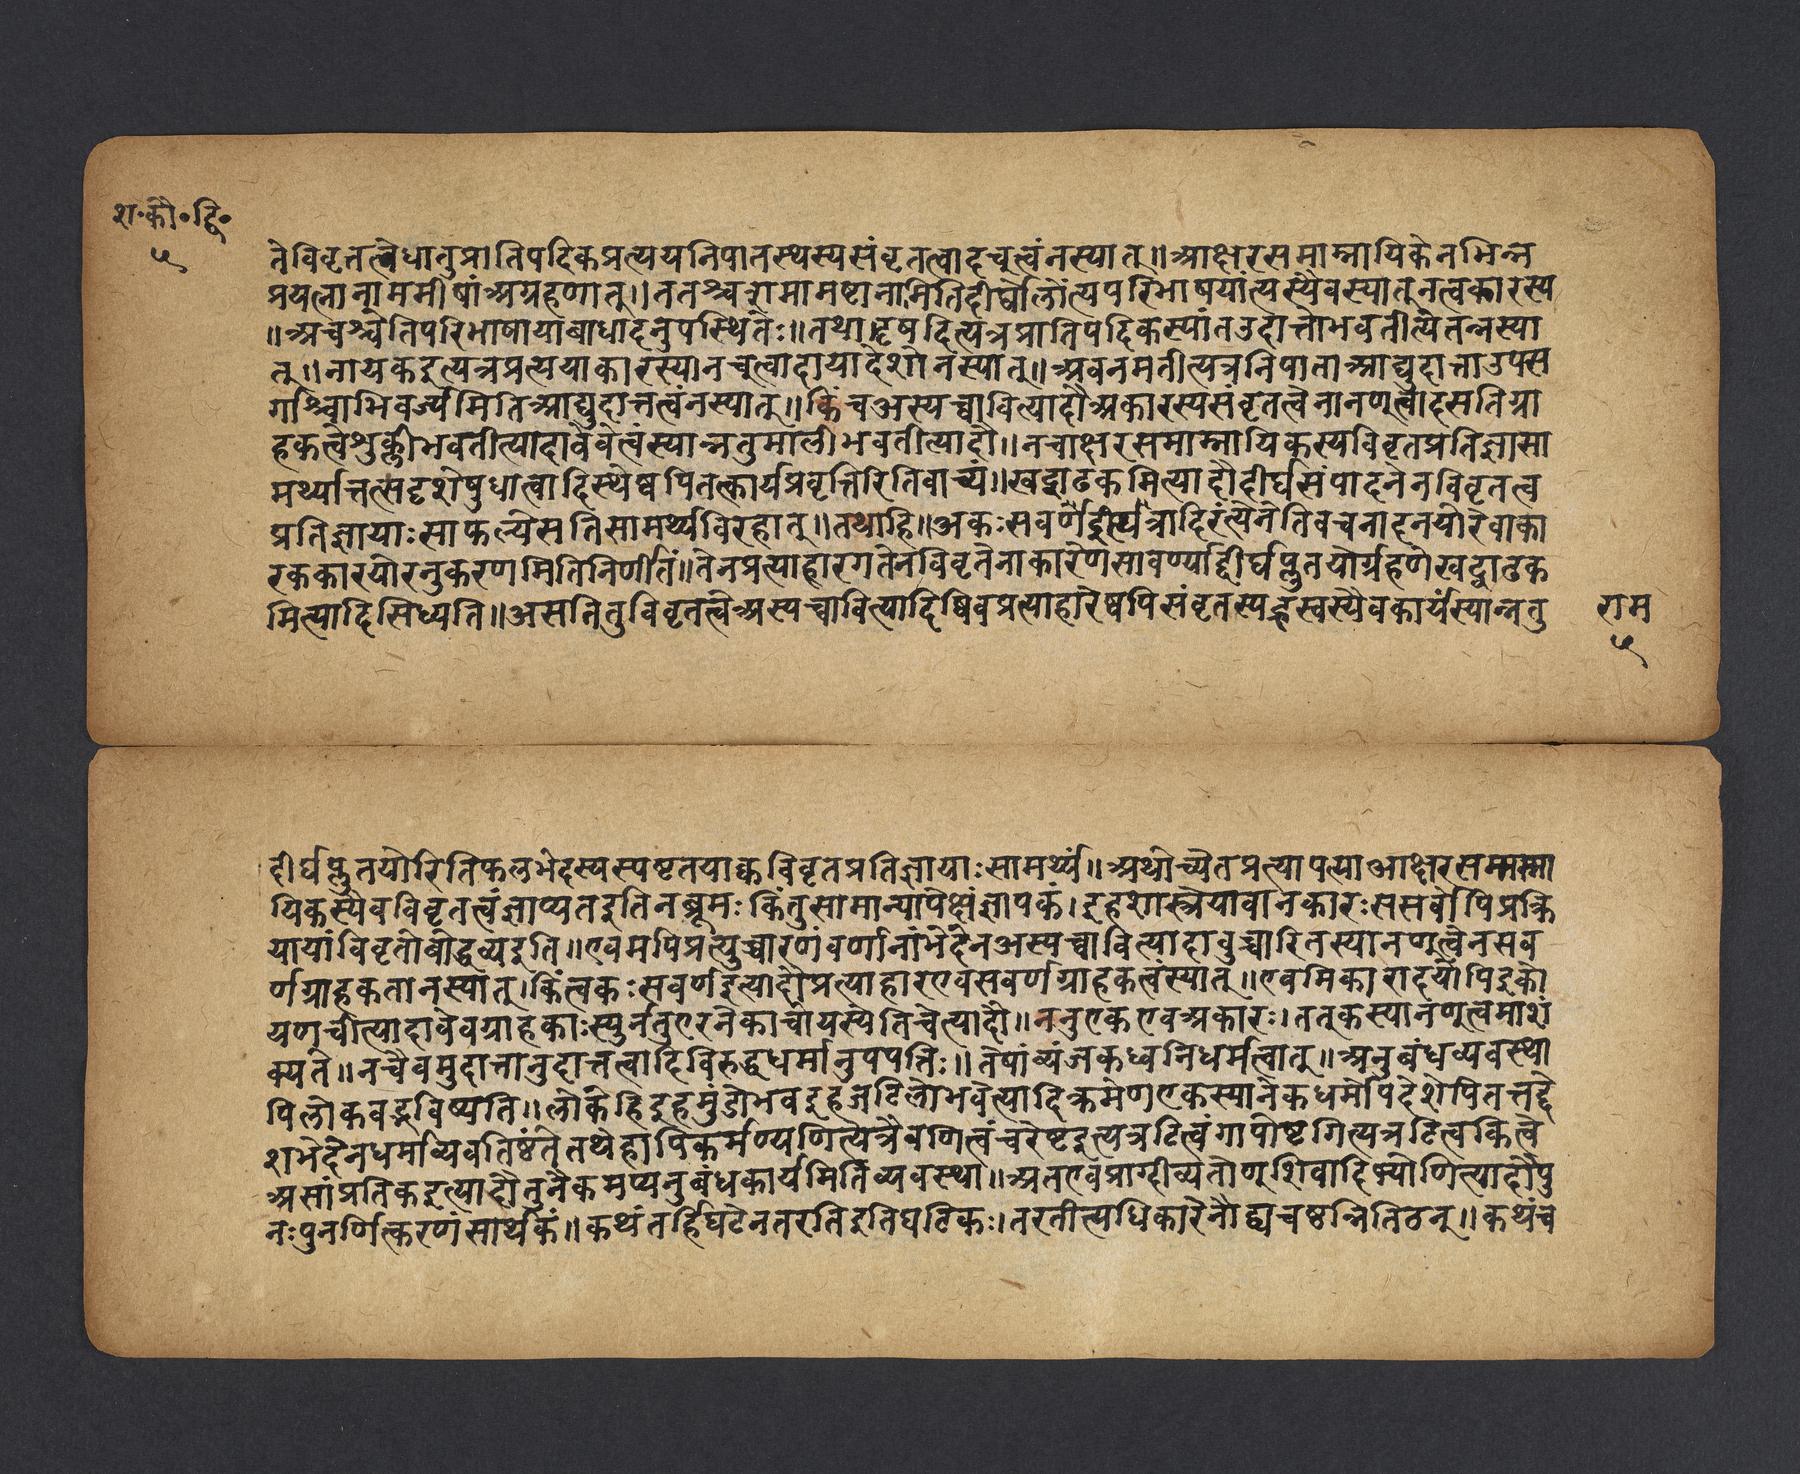 श॰कौ॰द्वि॰
५
ते विवृतत्वे धातुप्रातिपदिकप्रत्ययनिपातस्थस्य संवृतत्वादच्त्वं न स्यात् ॥ आक्षरसमाम्नायिकेन भिन्न
प्रयत्नानाममीषां अग्रहणात् ॥ ततश्च रामामष्टानामिति दीर्घोलोंत्यपरिभाषयांत्यस्यैव स्यात् न त्वकारस्य
॥ अचश्चेति परिभाषाया बाधादनुपस्थितेः ॥ तथा दृषदित्यत्र प्रातिपदिकस्यांत उदात्तो भवतीत्येतन्नस्या
त् ॥ नायक इत्यत्र प्रत्ययाकारस्यानच्त्वादायादेशो न स्यात् ॥ अवनमतीत्यत्र निपाता आद्युदात्ता उपस
र्गाश्चाभिवर्ज्यमिति आद्युदात्तत्वं न स्यात् ॥ किंच अस्य च्वावित्यादौ अकारस्य संवृतत्वेनानण्त्वादसति ग्रा
हकत्वे शुक्लीभवतीत्यादावेवेत्वं स्यान्न तु मालीभवतीत्यादौ ॥ नचाक्षरसमाम्नायिकस्य विवृतप्रतिज्ञासा
मर्थ्यात्तत्सदृशेषु धात्वादिस्थेष्वपि तत्कार्यप्रवृत्तिरिति वाच्यं ॥ खट्वाढकमित्यादौ दीर्घसंपादनेन विवृतत्व
प्रतिज्ञायाः साफल्ये सति सामर्थ्यविरहात् ॥ तथाहि ॥ अकः सवर्णेदीर्घ्यत्रादिरंत्येनेति वचनादनयोरेवाका
रककारयोरनुकरणमिति निर्णीतं ॥ तेन प्रत्याहारगतेन विवृतेनाकारेण सावर्ण्याद्दीर्घप्लुतयोर्ग्रहणे खट्वाढक
मित्यादि सिध्यति ॥ असति तु विवृतत्वे अस्य च्वावित्यादिष्विव प्रत्याहारेष्वपि संवृतस्य ह्रस्वस्यैव कार्यं स्यान्न तु
राम
५
दीर्घप्लुतयोरिति फलभेदस्य स्पष्टतया क्व विवृतप्रतिज्ञायाः सामर्थ्यं ॥ अथोच्येत प्रत्यापत्या आक्षरसमाम्ना
यिकस्यैव विवृतत्वं ज्ञाप्यत इति न ब्रूमः किंतु सामान्यापेक्षं ज्ञापकं । इह शास्त्रे यावानकारः स सर्वोपि प्रक्रि
यायां विवृतो बोद्धव्य इति ॥ एवमपि प्रत्युच्चारणं वर्णानां भेदेन अस्य च्वावित्यादावुच्चारितस्यानण्त्वेन सव
र्णग्राहकता न स्यात् । किंत्वकः सवर्ण इत्यादौ प्रत्याहार एव सवर्णग्राहकत्वं स्यात् ॥ एवमिकारादयोपि इको
यणचीत्यादावेव ग्राहकाः स्युर्न तु एरनेकाचो यस्येति चेत्यादौ ॥ ननु एक एव अकारः । तत्कस्यानण्त्वमाशं
क्यते ॥ नचैवमुदात्तानुदात्तत्वादिविरुद्धधर्मानुपपत्तिः ॥ तेषां व्यंजकध्वनिधर्मत्वात् ॥ अनुबंधव्यवस्था
पि लोकवद्भविष्यति ॥ लोके हि इह मुंडो भव इह जटिलो भवेत्यादि क्रमेण एकस्यानेकधर्मोपदेशेपि तत्तद्दे
शभेदेन धर्माव्यवतिष्ठंते तथेहापि कर्मण्यणित्यत्रैव णित्वं चरेष्ट इत्यत्र टित्वं गापोष्टगित्यत्र टित्वकित्वे
असांप्रतिक इत्यादौ तु नैकमप्यनुबंधकार्यमिति व्यवस्था ॥ अत एव प्राग्दीव्यतोण् शिवादिभ्योणित्यादौ पु
नः पुनर्णित्करणं सार्थकं ॥ कथं तर्हि घटेन तरति इति घटिकः । तरतीत्यधिकारे नौद्व्यचष्ठन्निति ठन् ॥ कथं च